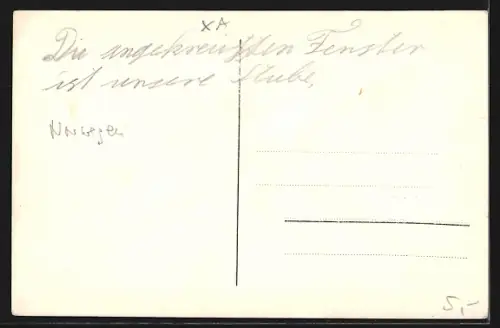 XA
Die angekreuzten Fenster
ist unsere Stube.
Norwegen
5,-